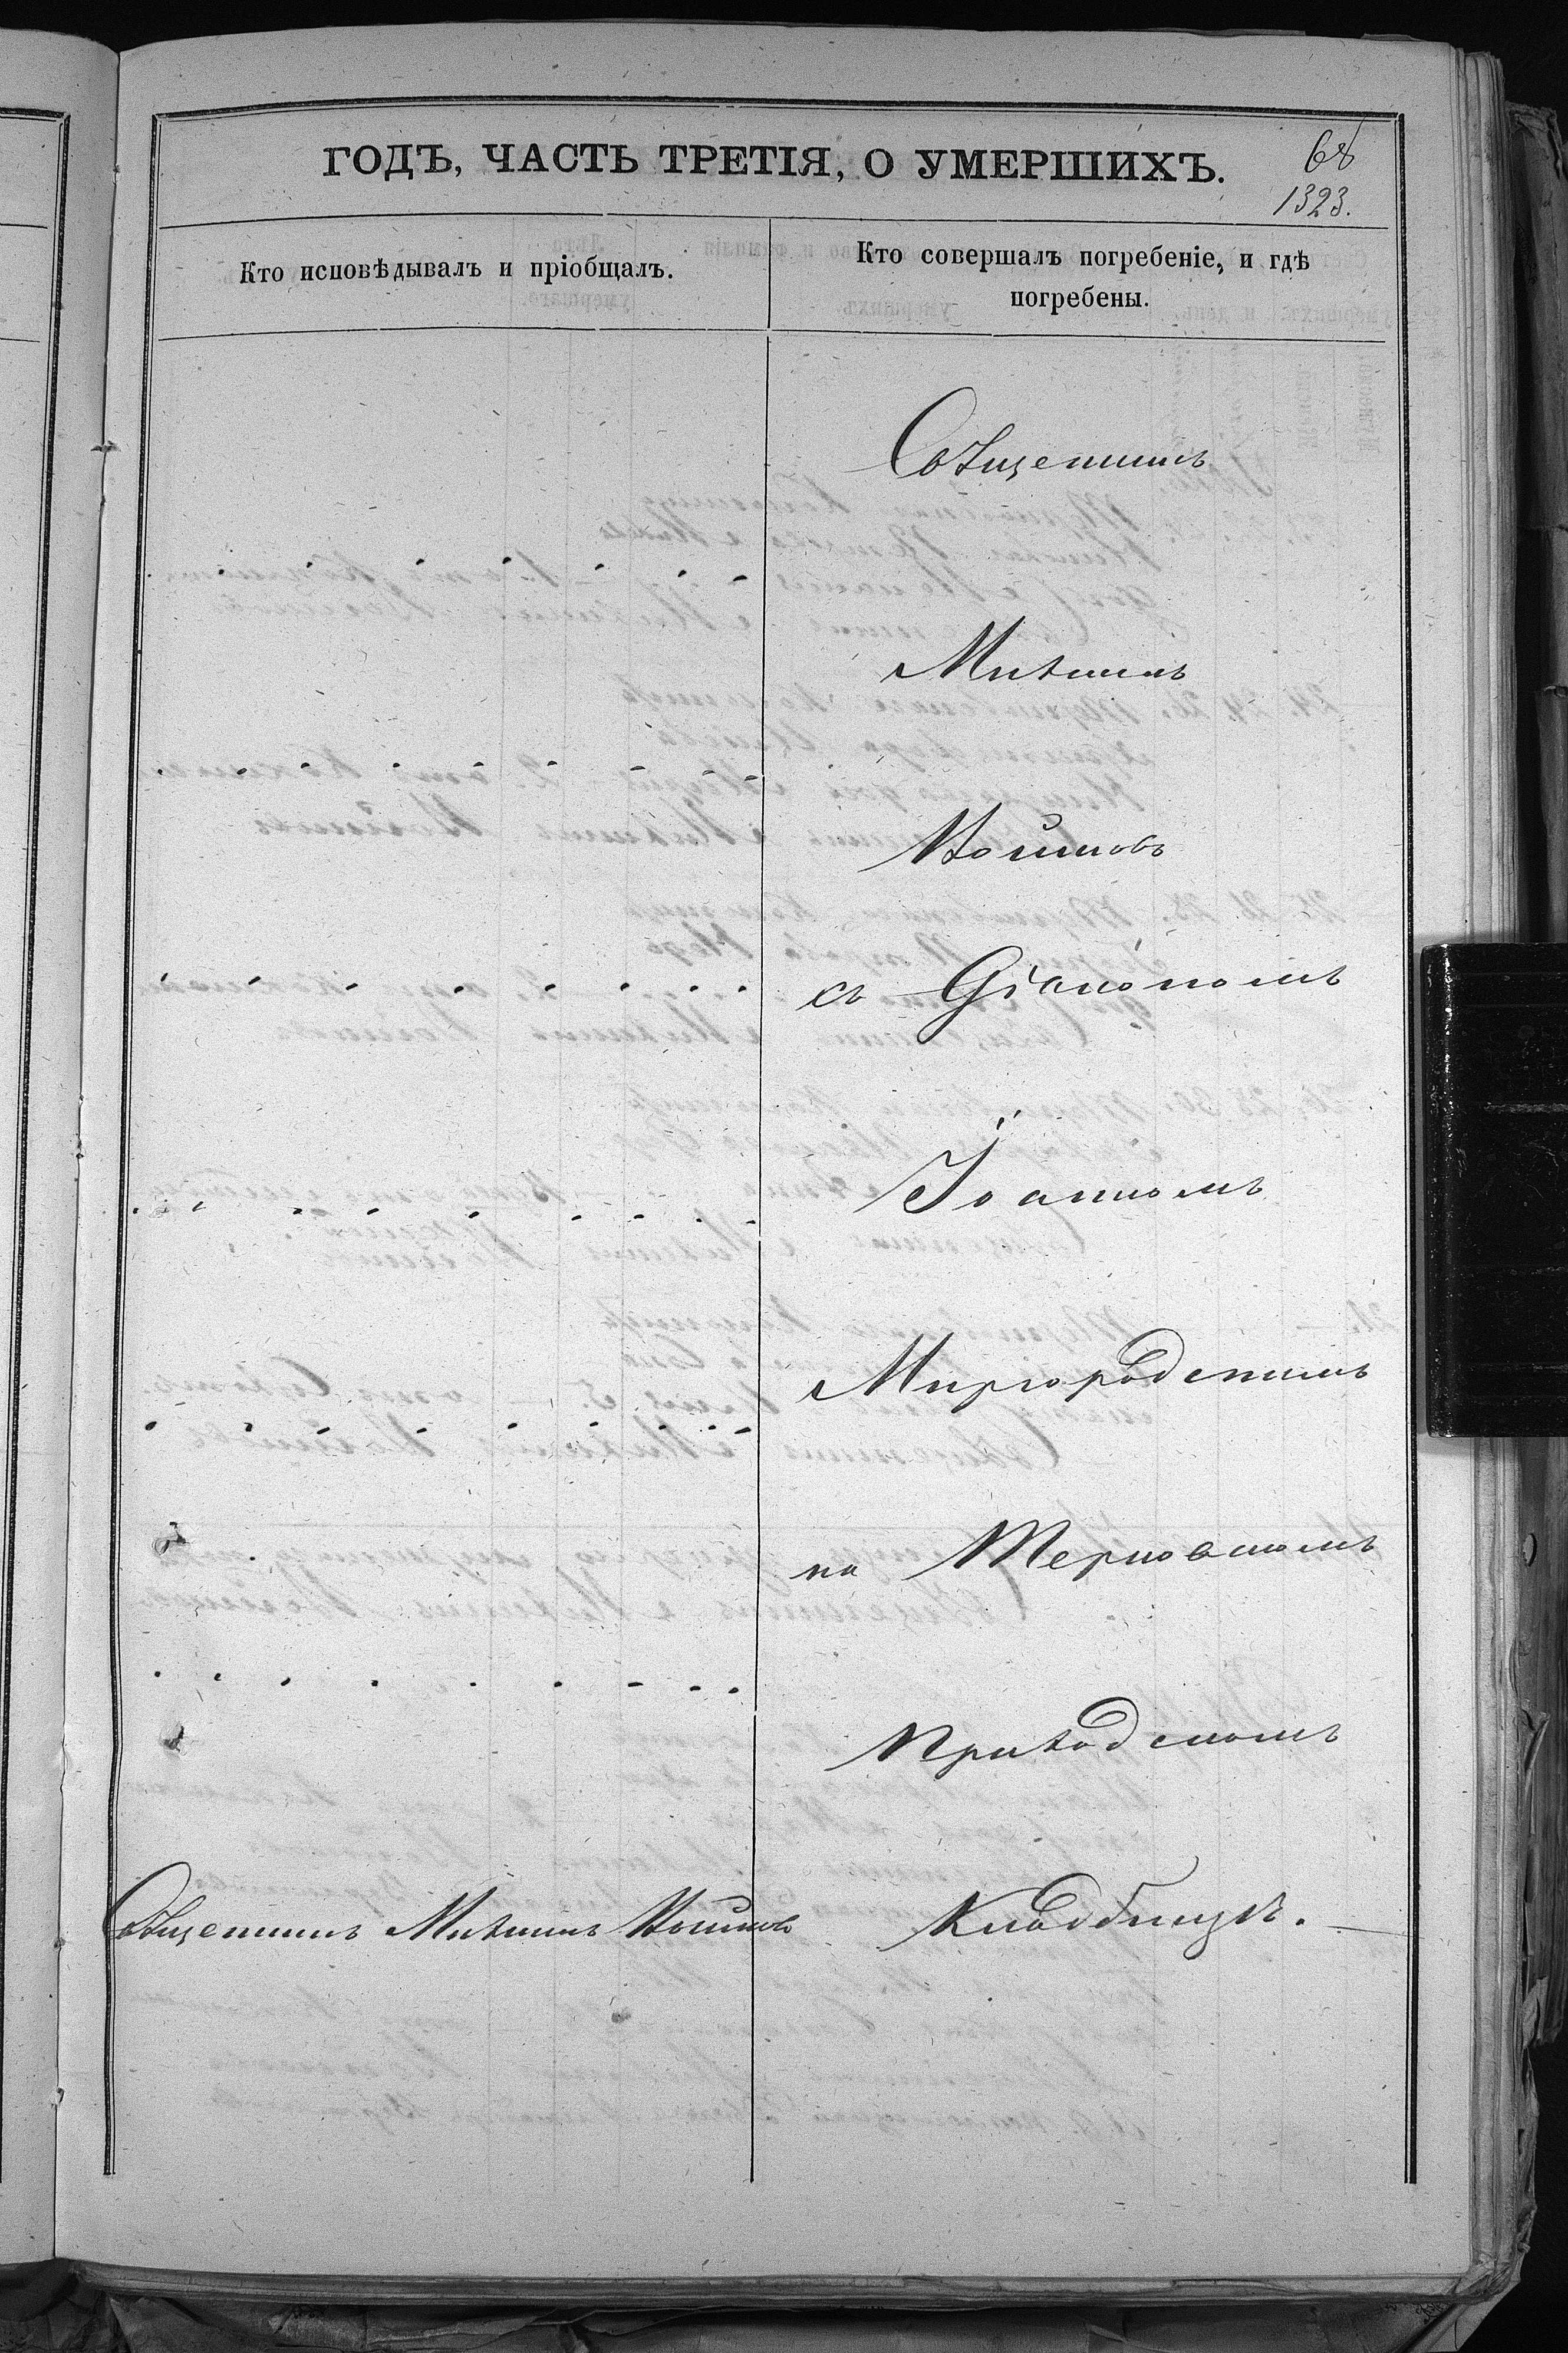 ГОДЪ, ЧАСТЬ ТРЕТІЯ, О УМЕРШИХЪ.
68
1323.
Кто исповѣдывалъ и пріобщалъ.
Кто совершалъ погребеніе, и гдѣ
погребены.
Священникъ
Михаилъ
съ Діакономъ
Іоанномъ
Миргородскимъ
на Терновскомъ
Приходскомъ
Кладбищѣ.
Священникъ Михаилъ